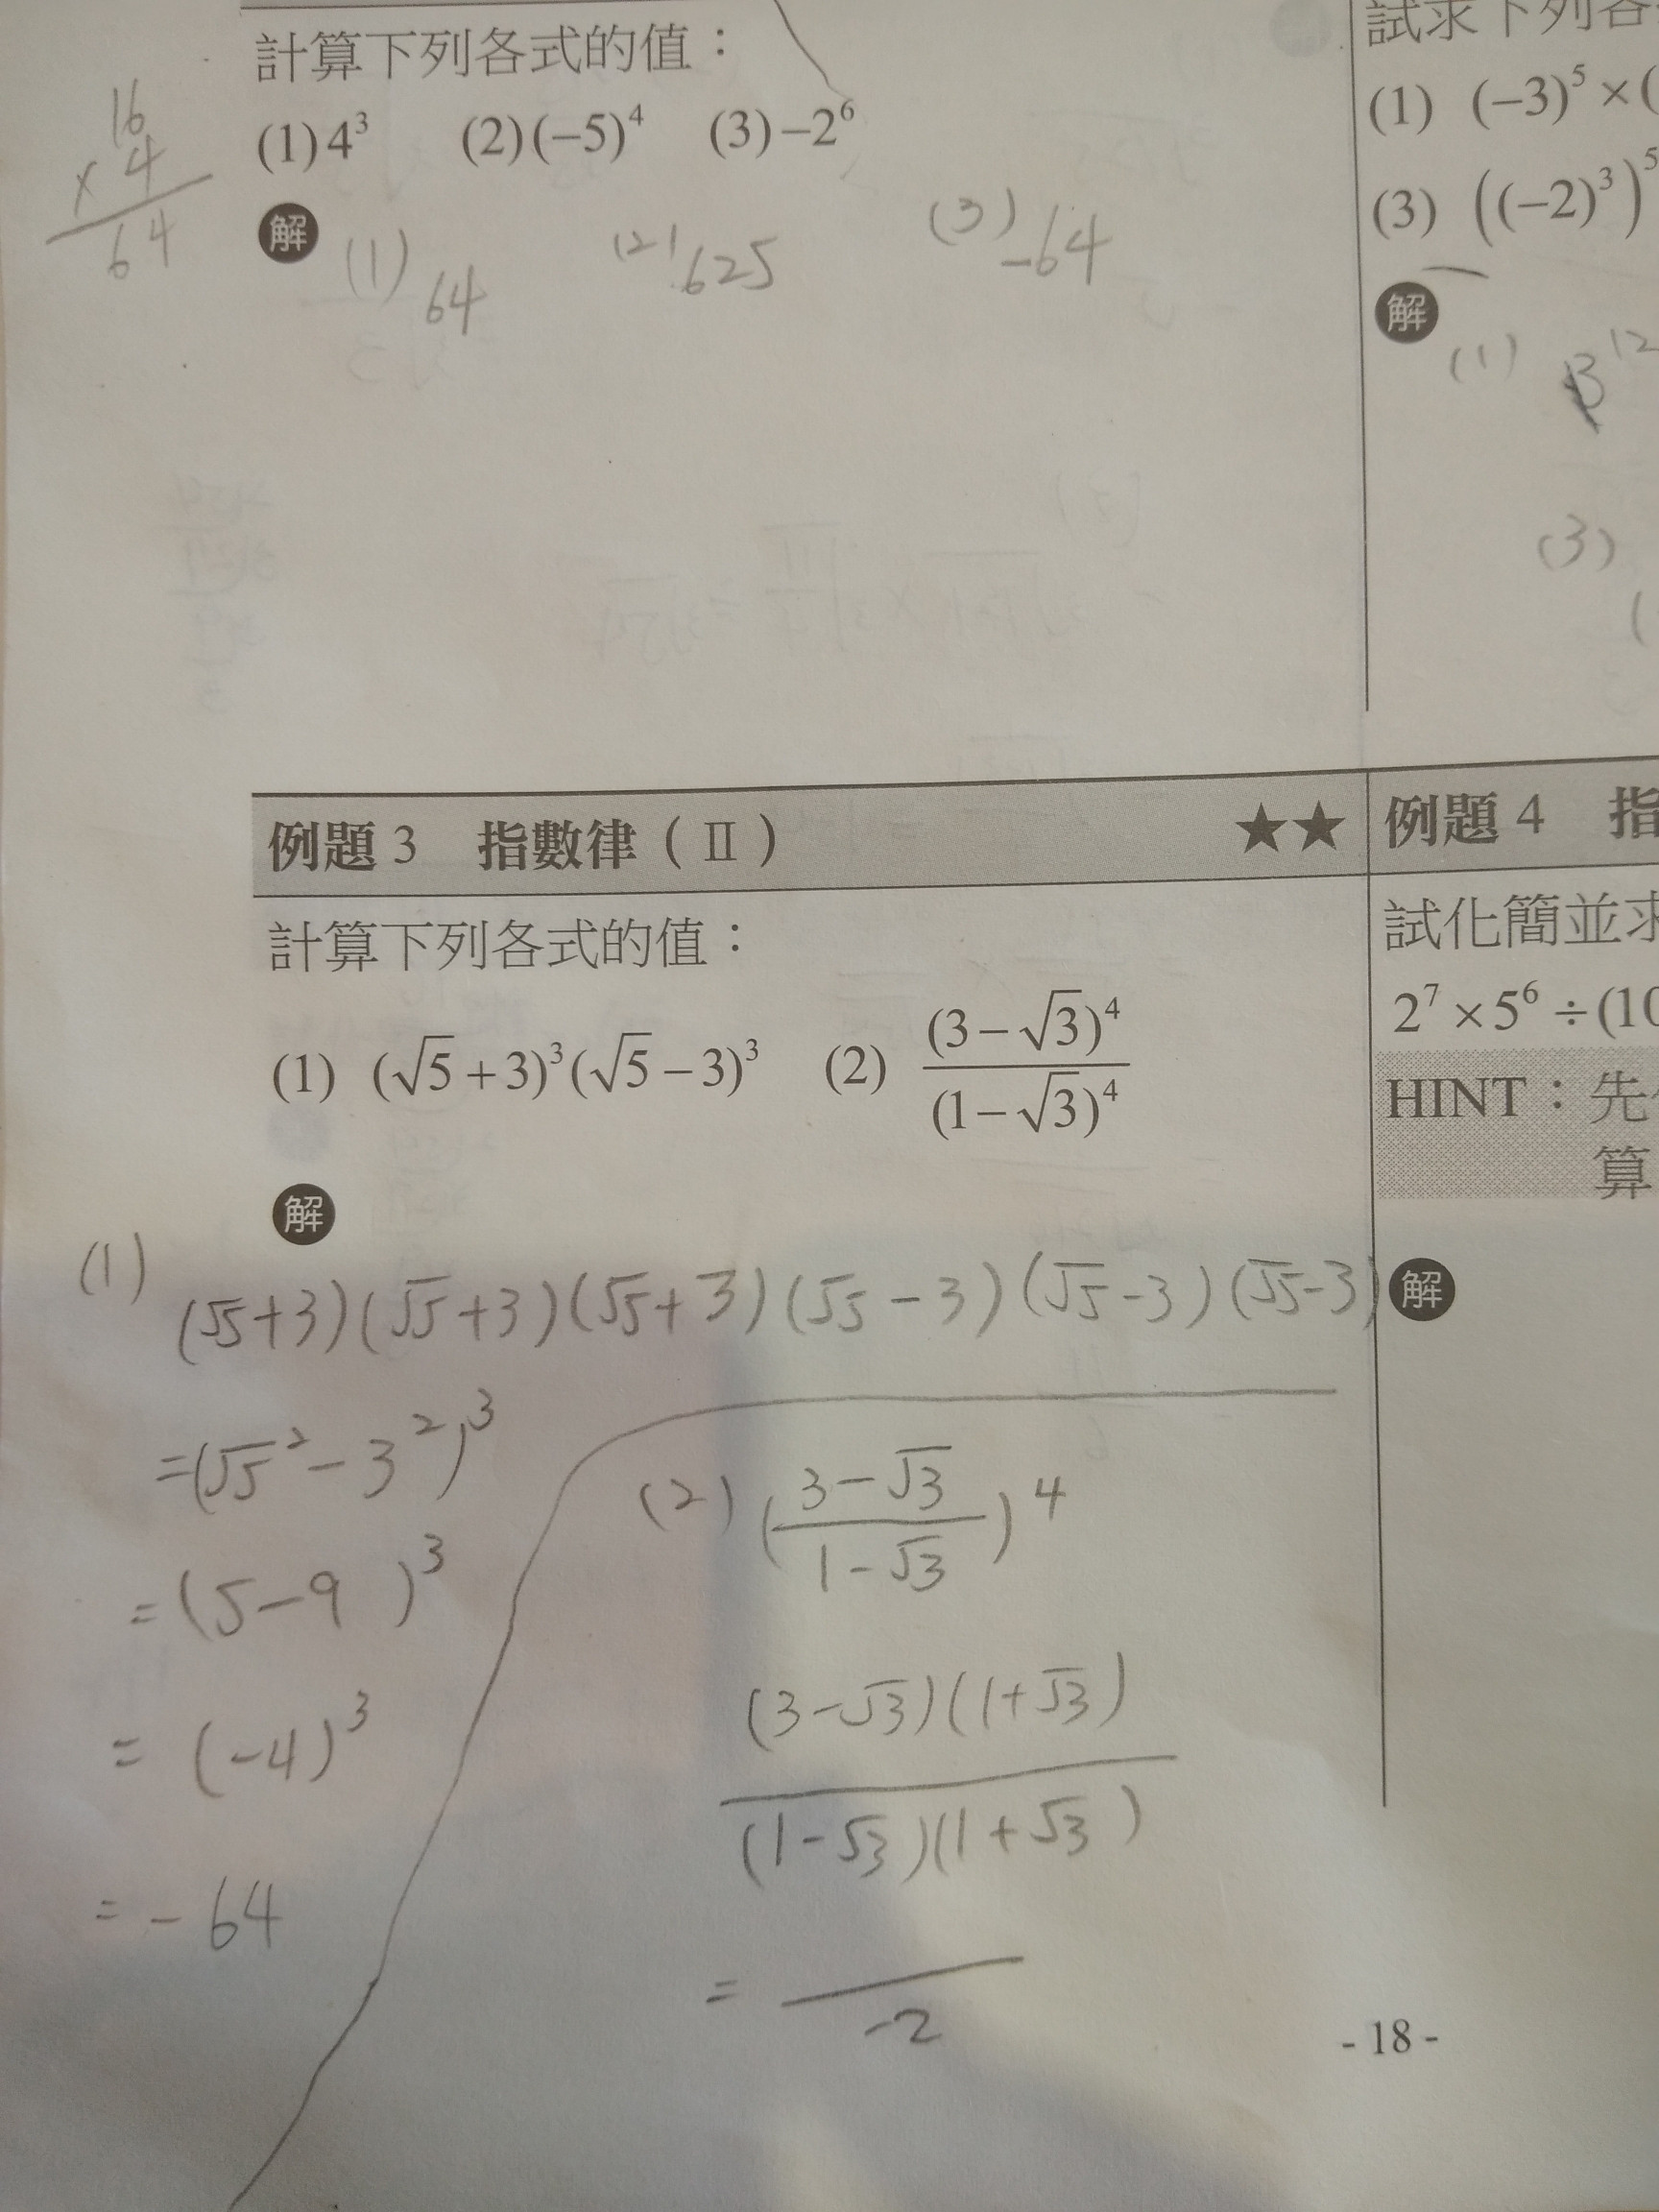 計算下列各式的值：
(1) 4³ (2) (−5)⁴ (3) −2⁶
16
× 4
64
解
(1) 64 (2) 625 (3) −64
試求下列各
(1) (−3)⁵ × (
(3) ((−2)³)⁵
解
(1) 3¹²
(3)
(
例題 3 指數律（Ⅱ） ★★
計算下列各式的值：
(1) (√5 + 3)³(√5 − 3)³ (2) (3 − √3)⁴ / (1 − √3)⁴
解
(1) (√5+3)(√5+3)(√5+3)(√5−3)(√5−3)(√5−3)
=(√5² − 3²)³
= (5−9 )³
= (−4)³
= − 64
(2) ((3−√3) / (1−√3))⁴
(3−√3)(1+√3) / (1−√3)(1+√3)
= / −2
例題 4 指
試化簡並求
2⁷ × 5⁶ ÷ (10
HINT：先
算
解
- 18 -